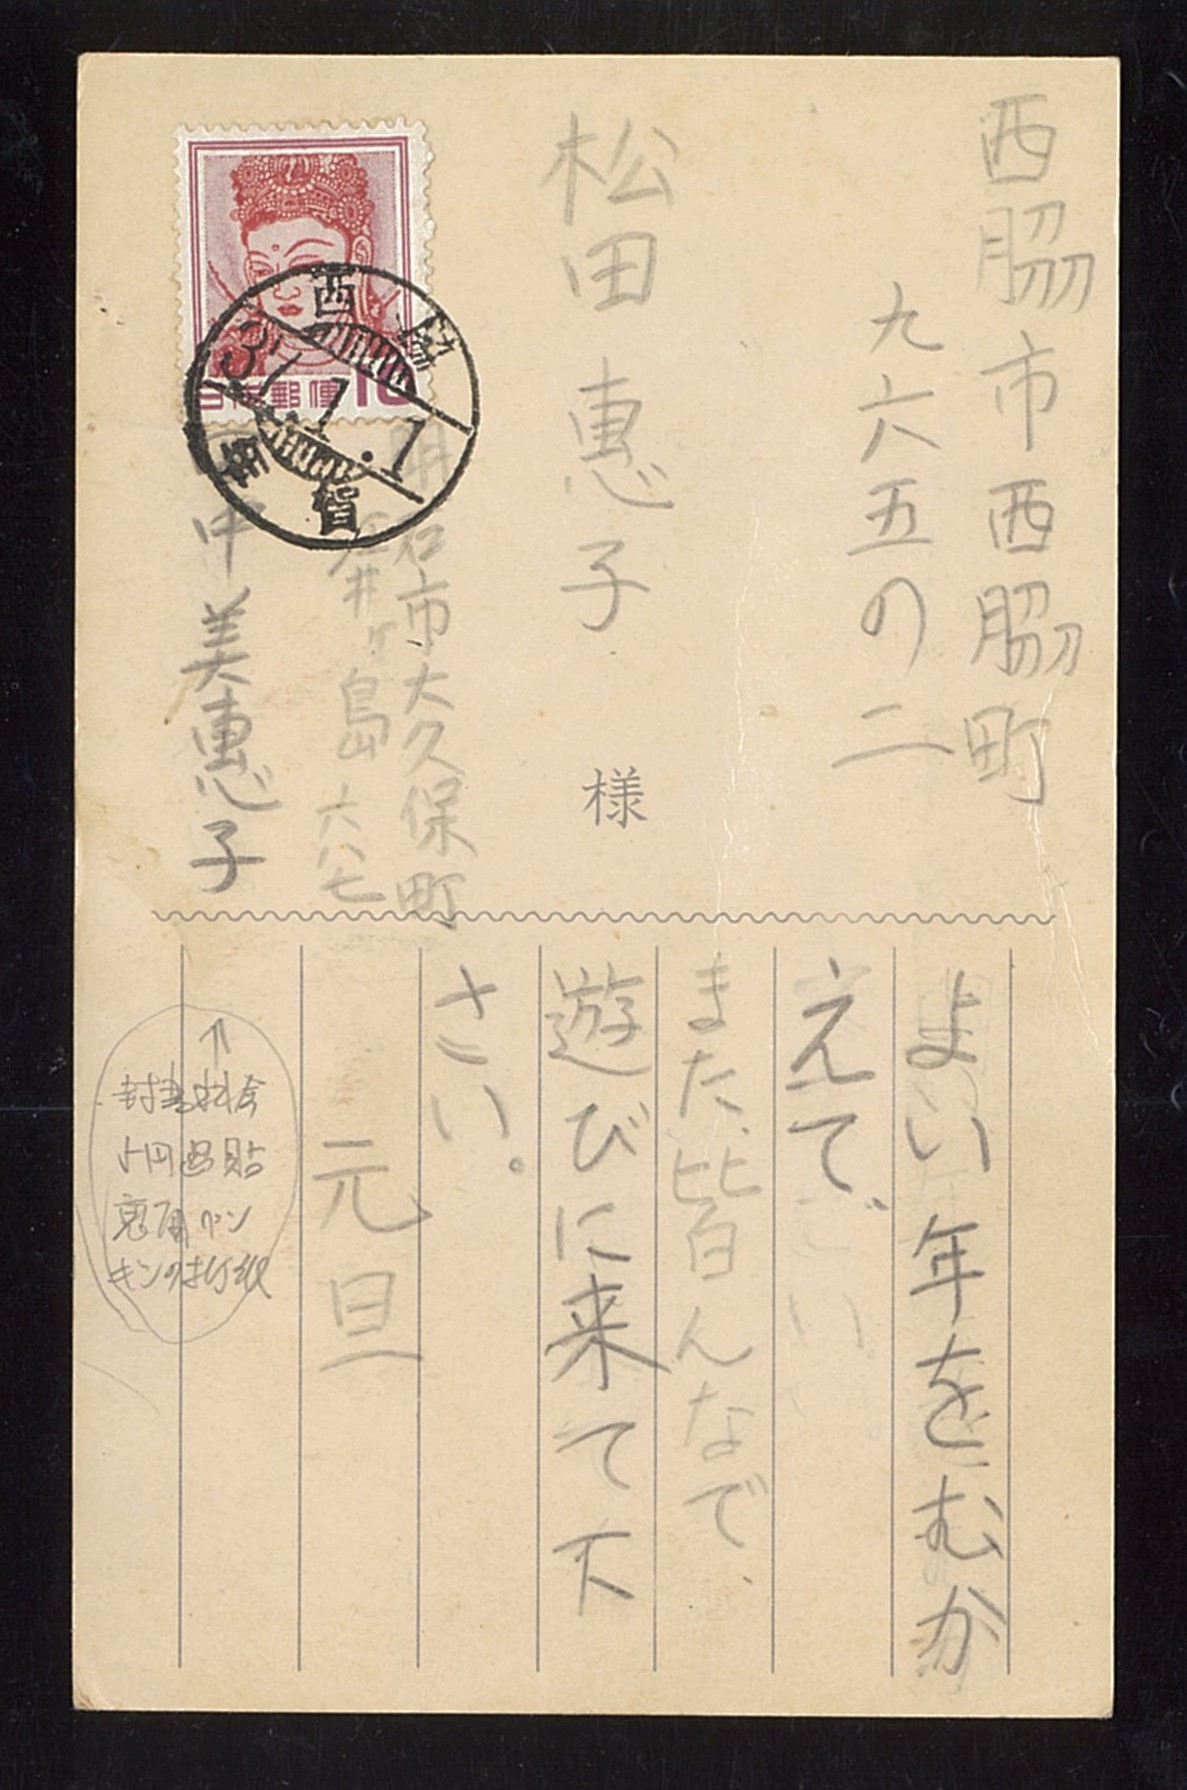 西脇市西脇町
九六五の二
松田恵子
様
明石市大久保町
江井ヶ島六八七
田中美恵子
日本郵便 10
西脇
37.1.1
年賀
よい年をむか
えて、
また、皆んなで、
遊びに来て下
さい。
元旦
↑
封書料金
十円 貼
裏面ペン
キンの折紙